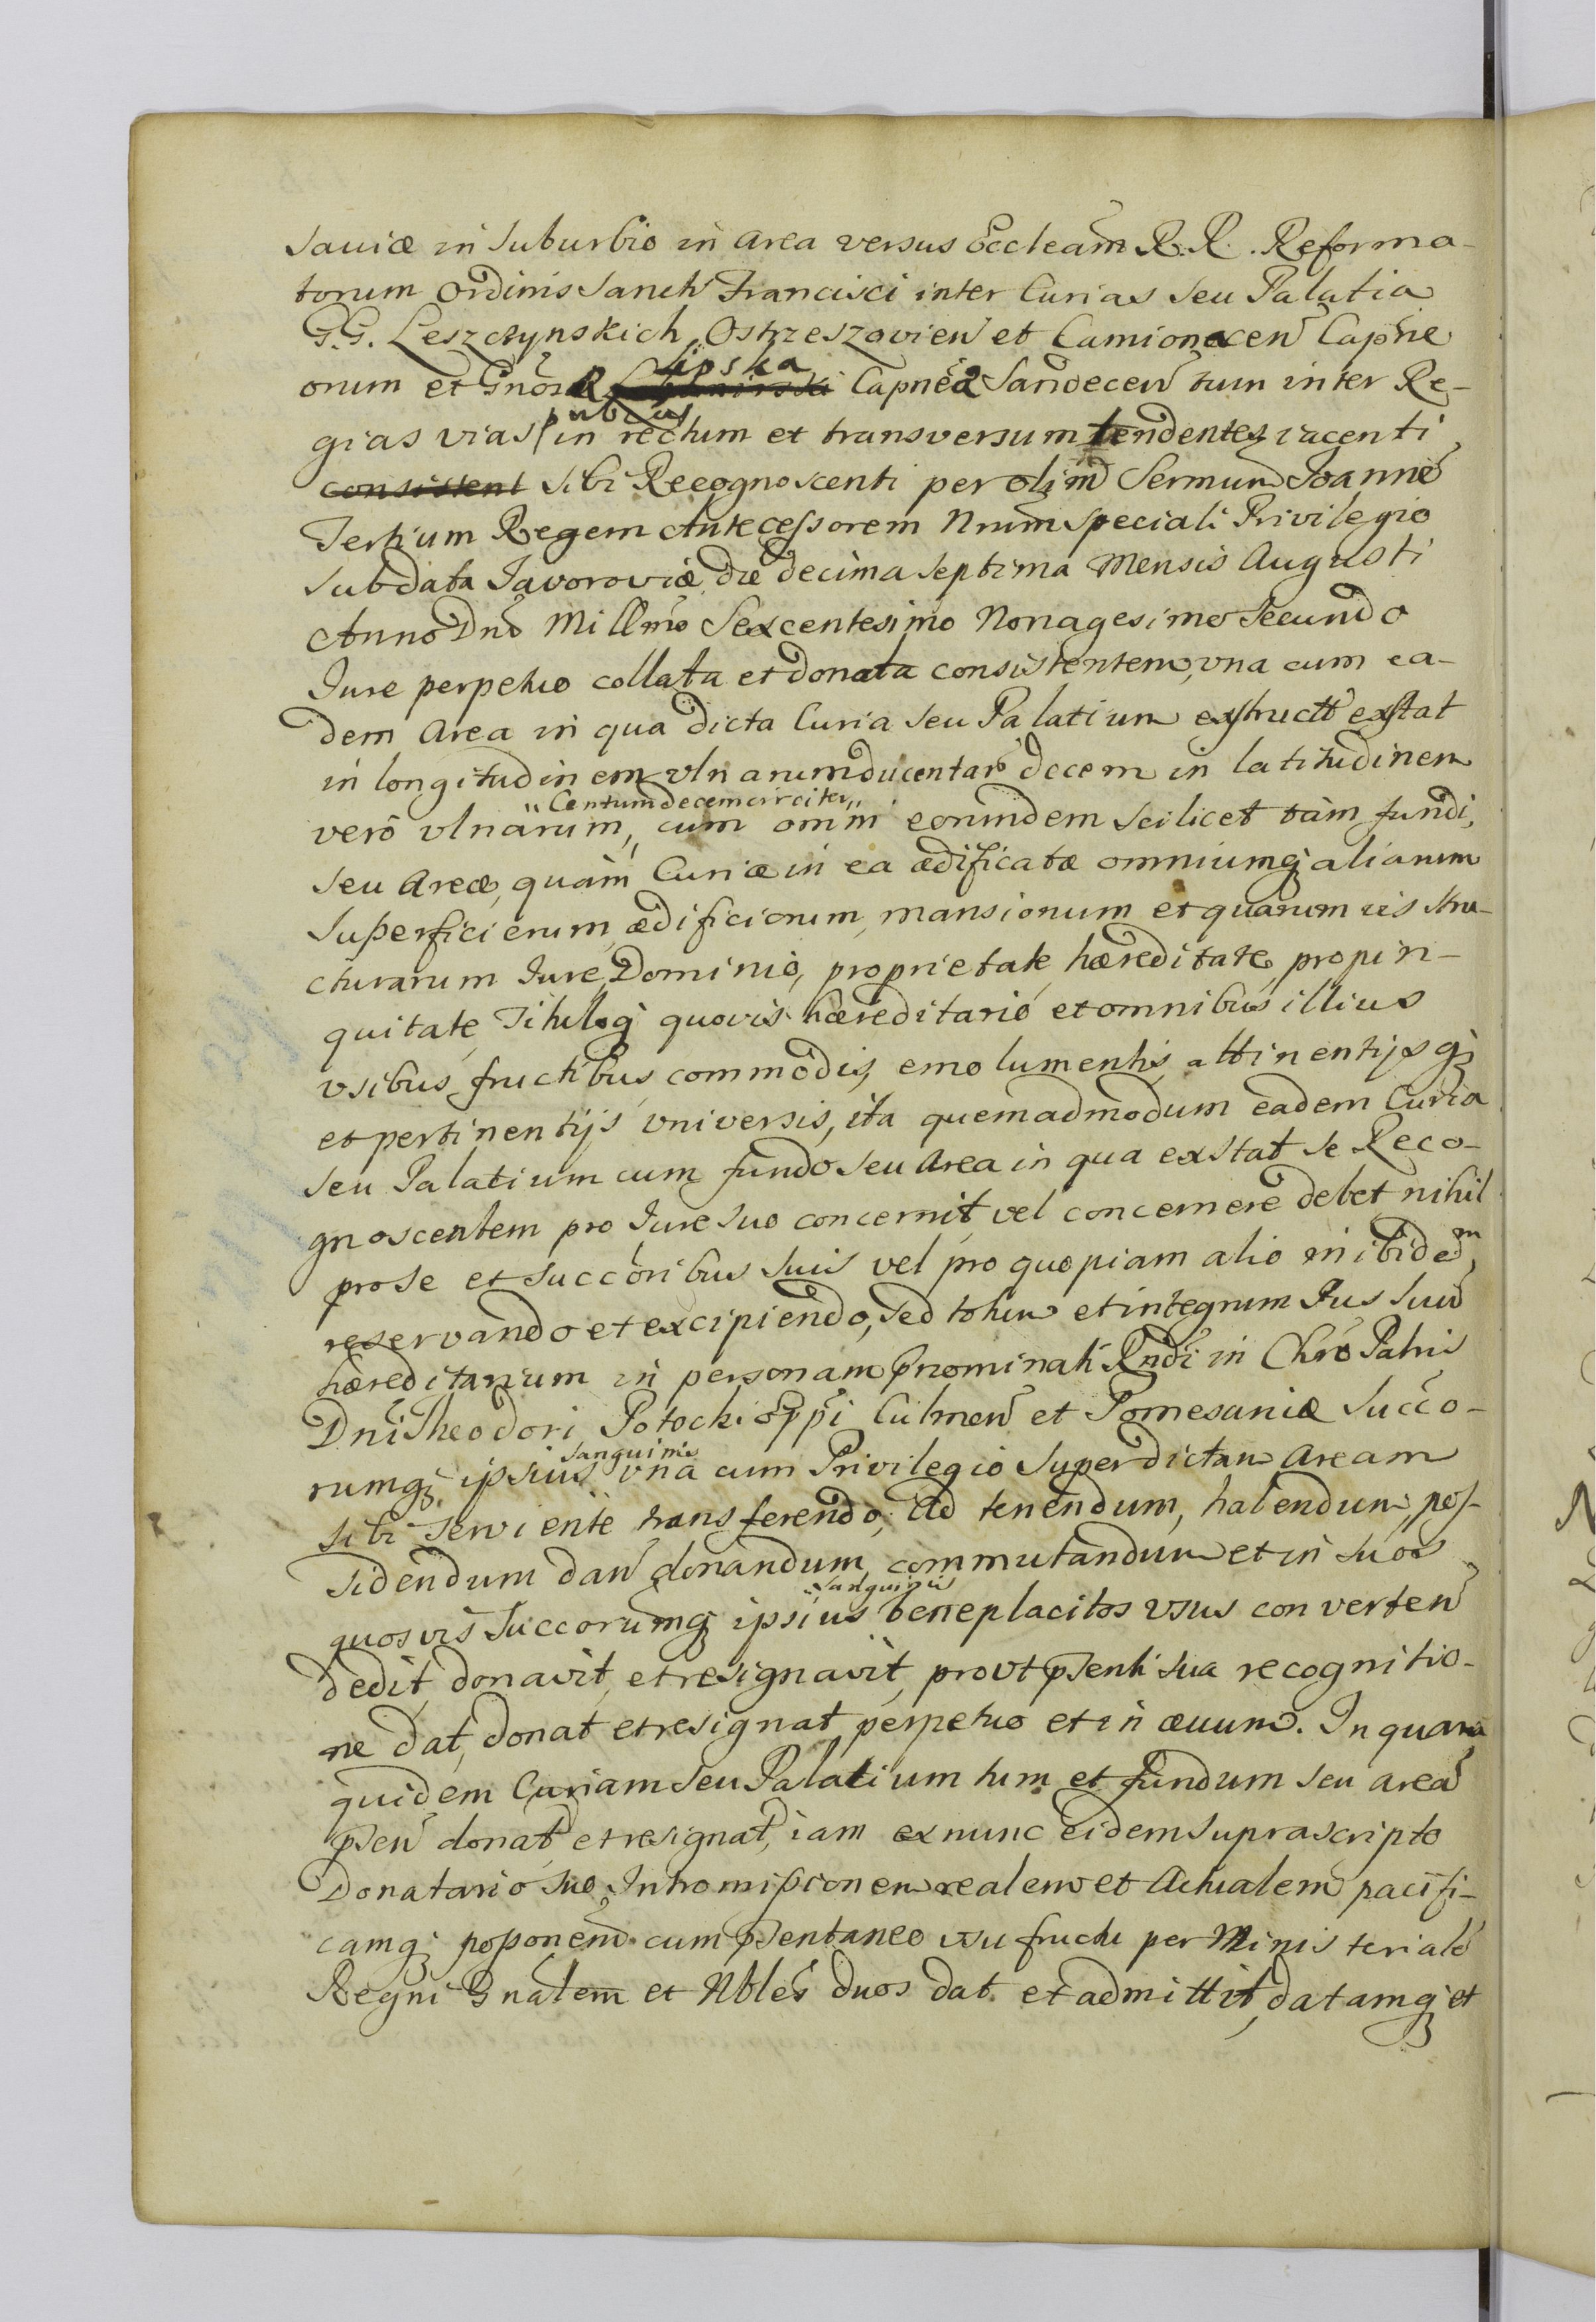 sauiæ in suburbio in area versus Eccleam R.R. Reforma-
torum Ordinis Sancti Francisci inter Curias seu Palatia
G.G. Leszczynskich Ostrzeszovien et Camionacen Capne
orum et Gnosæ Lipska Capneæ Sandecen tum inter Re-
gias vias publicas in rectum et transversum tendentes iacenti
consistent sibi Recognoscenti per olim Sermum Joanne
Tertium Regem Antecessorem Nrum speciali Privilegio
sub data Javoroviæ die decima septima Mensis Augusti
Anno Dni Millmo Sexcentesimo Nonagesimo Secundo
Jure perpetuo collata et donata consistentem, vna cum ea-
dem Area in qua dicta Curia seu Palatium exstruct exstat
in longitudinem vlnarum ducentar decem in latitudinem
verò vlnarum, centum decem circiter cum omni eorundem scilicet tàm fundi,
seu Areæ, quàm Curiæ in ea ædificatæ omniumq; aliarum
superficierum, ædificiorum, mansionum et quarumuis stru-
cturarum Jure, Dominio, proprietate, hæreditate, propin-
quitate, Tituloq; quovis hæreditario et omnibus illius
vsibus, fructibus, commodis, emolumentis, attinentijsq;
et pertinentijs vniversis, ita quemadmodum eadem Curia
seu Palatium cum fundo seu Area in qua exstat se Reco-
gnoscentem pro Jure suo concernit, vel concernere debet nihil
pro se et succoribus suis vel pro quopiam alio inibidem
reservando et excipiendo, sed totum et integrum Jus suum
hæreditarium in personam pnominati Rndi in Chro Patris
Dni Theodori Potocki Eppi Culmen et Pomesaniæ Succo-
rumq; ipsius sanguinis vna cum Privilegio superdictam Aream
sibi serviente transferendo; Ad tenendum, habendum, pos-
sidendum dan donandum, commutandum et in suos
quosvis Succorumq; ipsius sanguinis beneplacitos vsus converten
dedit, donavit, et resignavit, prout psenti sua recognitio-
ne dat, donat et resignat perpetuo et in æuum. In quam
quidem Curiam seu Palatium tum et fundum seu area
psen donat et resignat, iam ex nunc eidem suprascripto
Donatario suo Intromissionem realem et Actualem pacifi-
camq; possonem cum psentaneo usufructu per Ministeriale
Regni Gnalem et Nbles duos dat et admittit, datamq; et